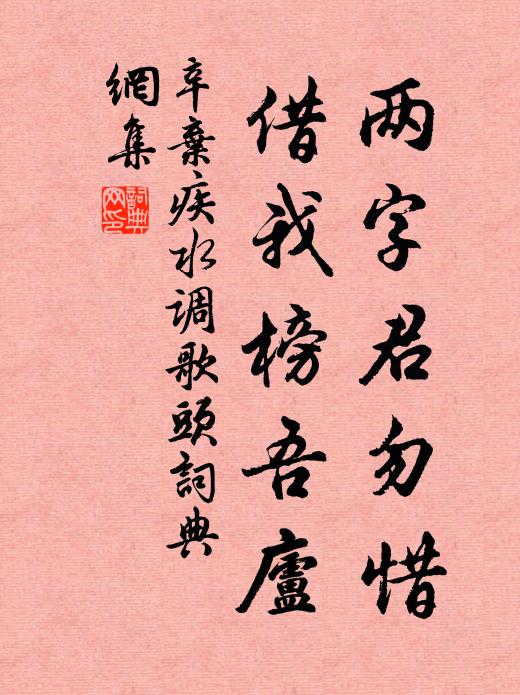 两字君勿惜
借我榜吾廬
辛棄疾水调歌頭詞典
網集
詞典网印